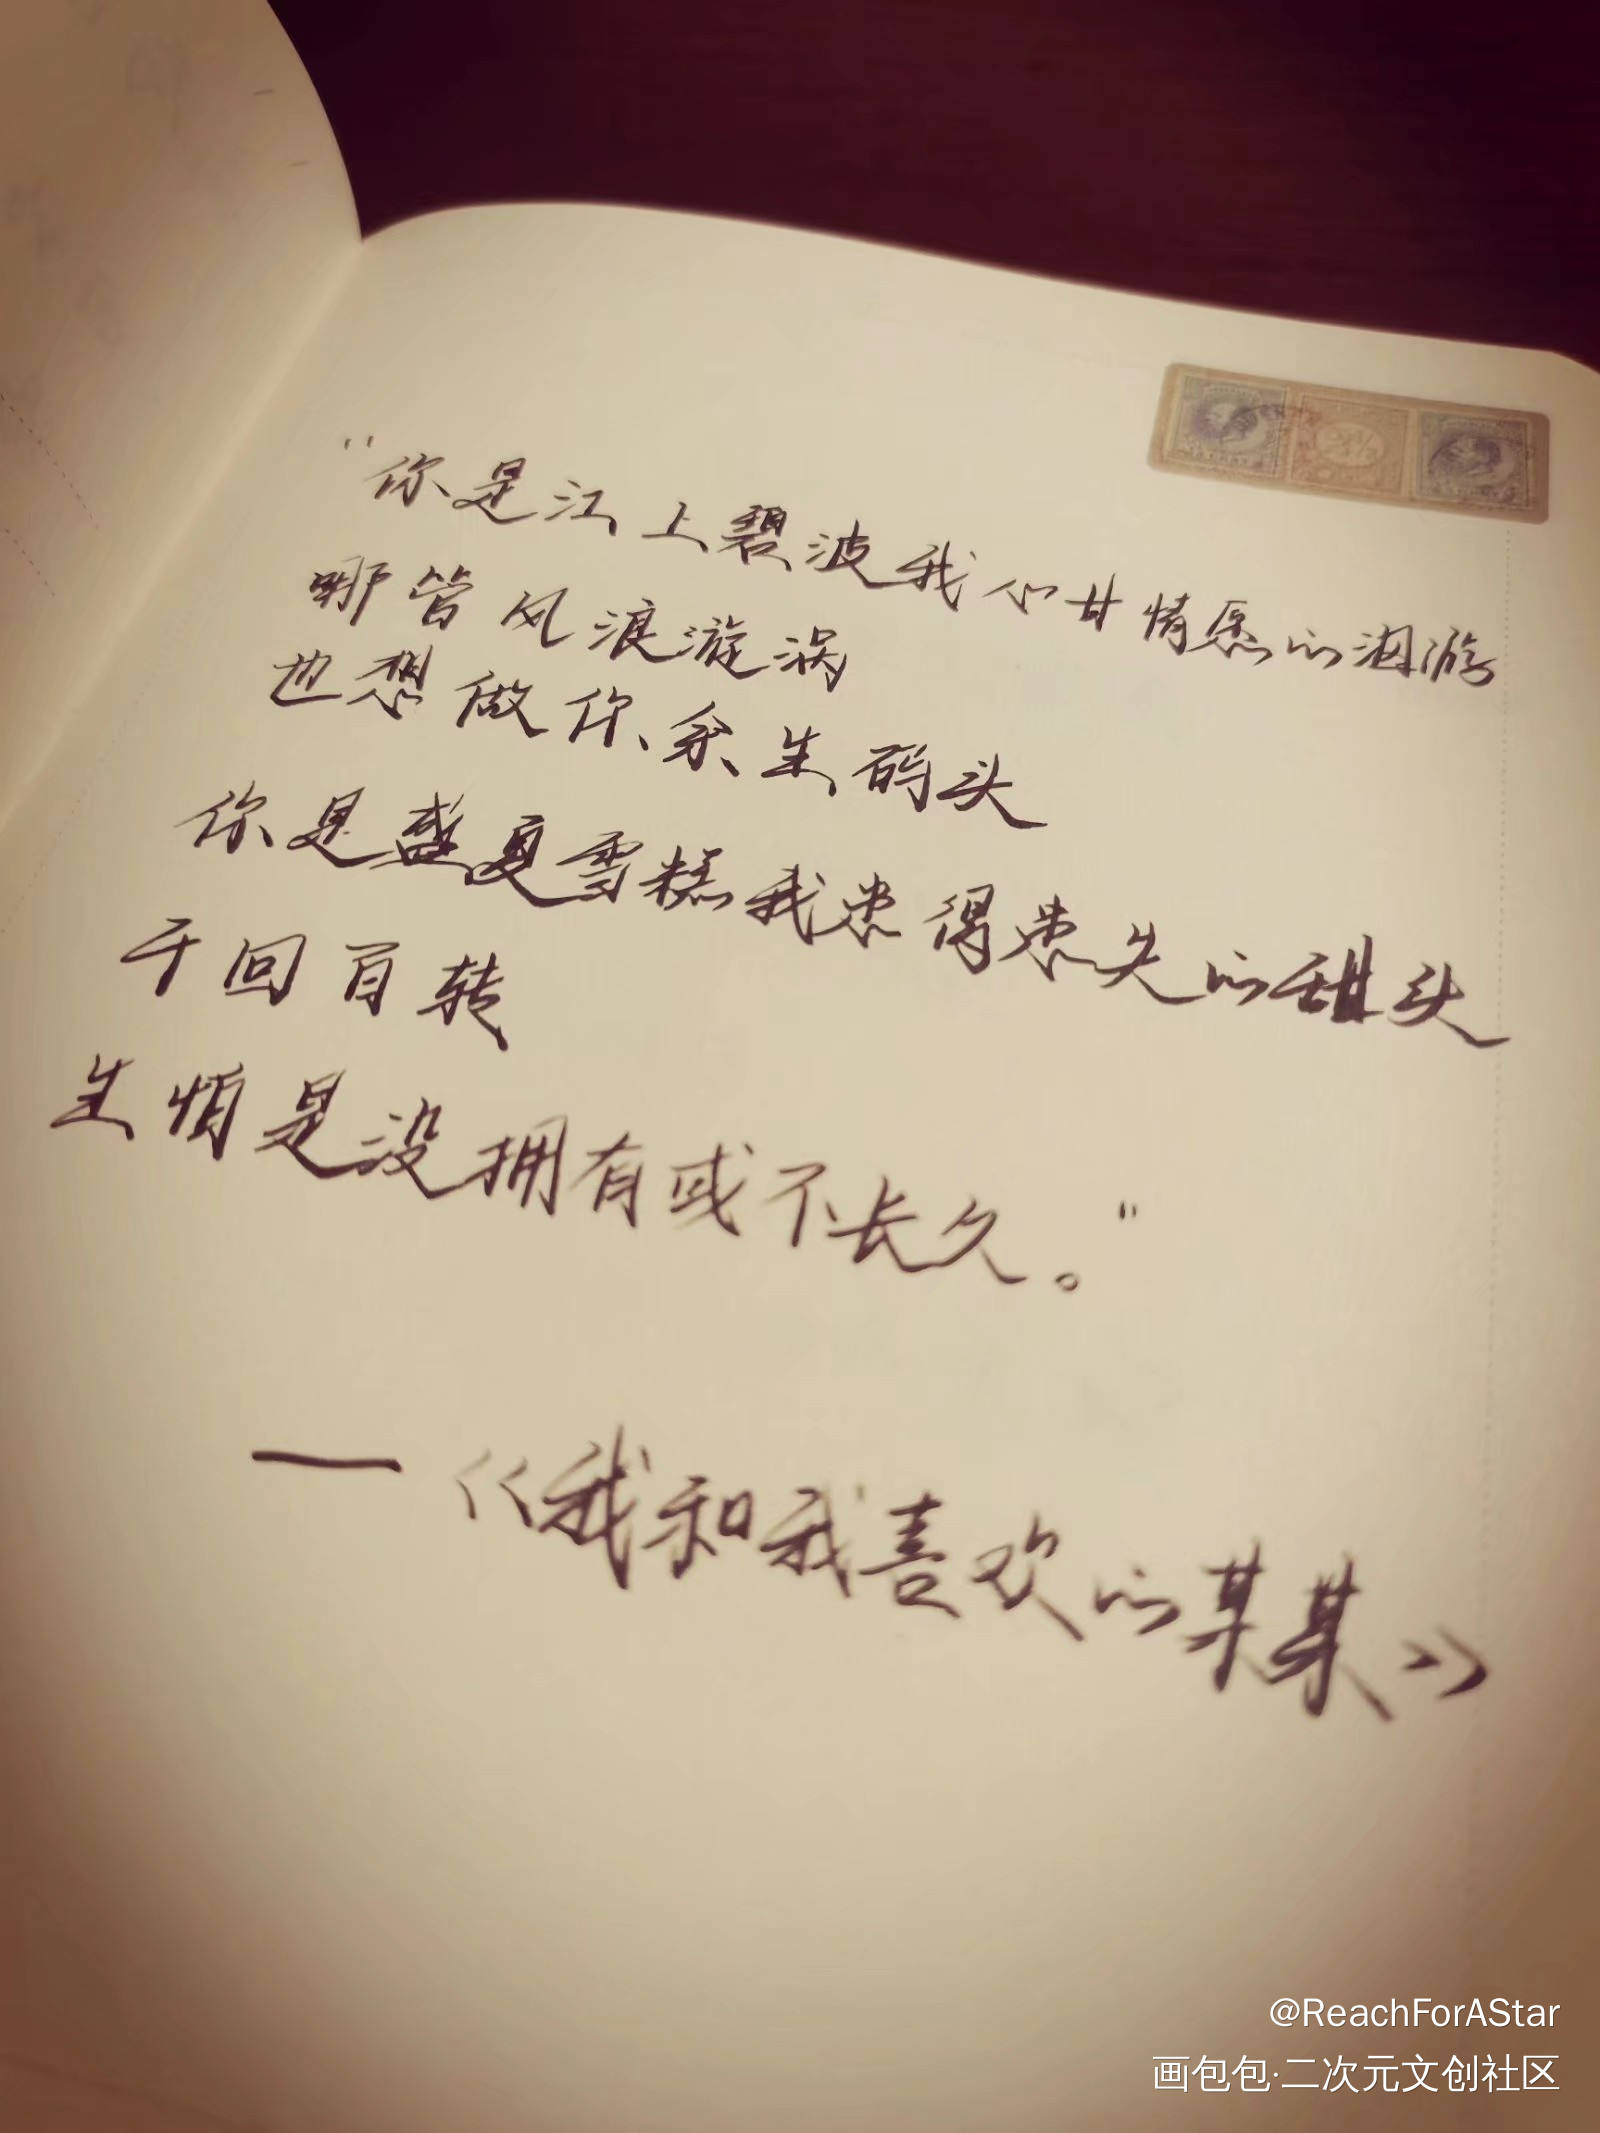 “你是江上碧波我心甘情愿的洄游
哪管风浪漩涡
也想做你余生码头
你是盛夏雪糕我患得患失的甜头
千回百转
生怕是没拥有或不长久。”
—《我和我喜欢的某某》
@ReachForAStar
画包包·二次元文创社区